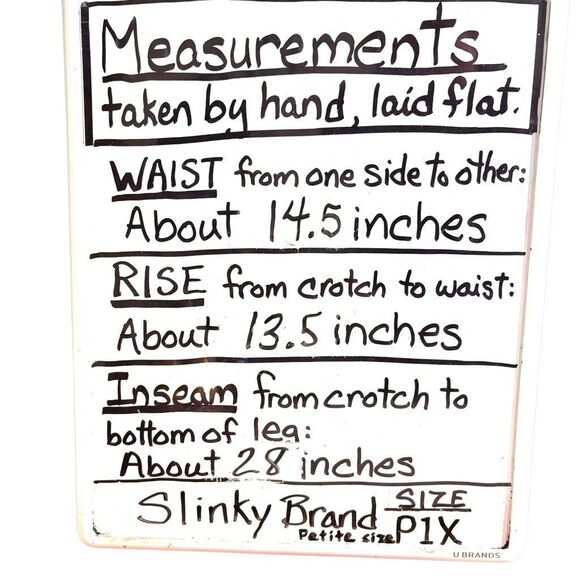 Measurements
taken by hand, laid flat.
WAIST from one side to other:
About 14.5 inches
RISE from crotch to waist:
About 13.5 inches
Inseam from crotch to
bottom of leg:
About 28 inches
Slinky Brand SIZE
Petite size P1X
U BRANDS